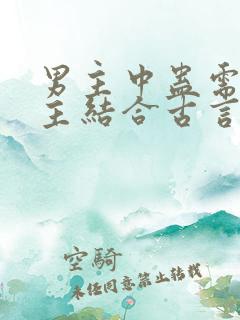 男主中蛊需
主結合古言
空騎
未经同意禁止转载